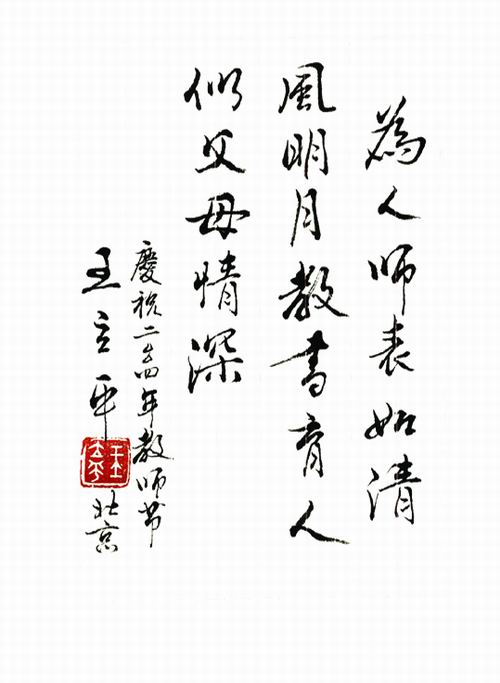 為人师表如清
風明月教書育人
似父母情深
慶祝二〇〇四年教师节
王立平
北京